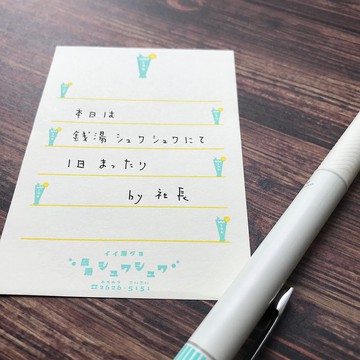 本日は
銭湯シュワシュワにて
1日まったり
by 社長
イイ湯ダヨ
銭湯シュワシュワ
☎2626-5151